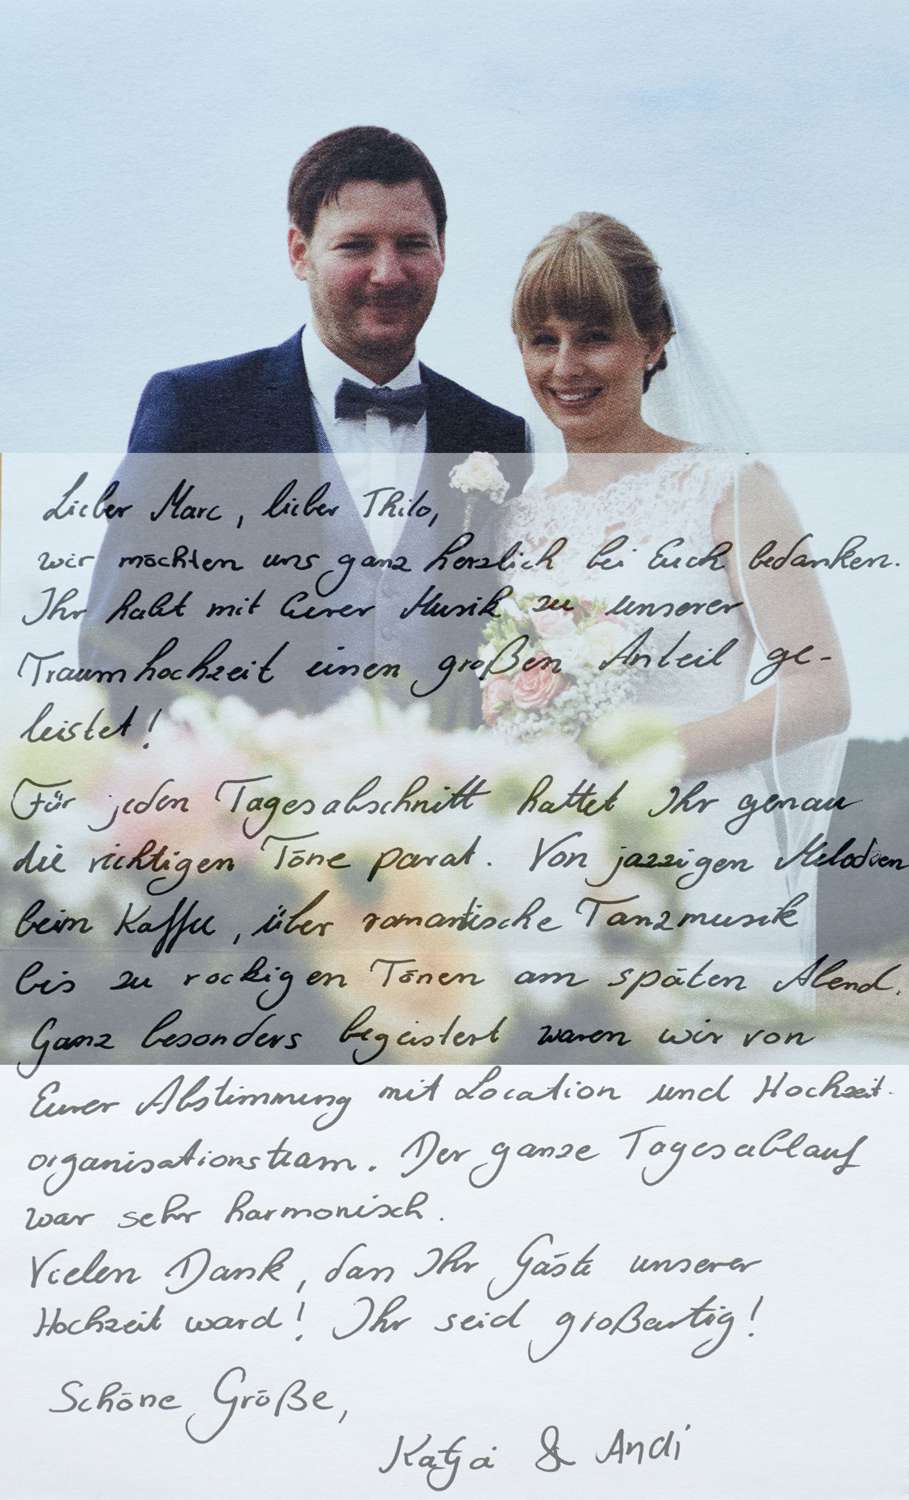 Lieber Marc, lieber Thilo,
wir möchten uns ganz herzlich bei Euch bedanken.
Ihr habt mit Eurer Musik zu unserer
Traumhochzeit einen großen Anteil ge-
leistet!
Für jeden Tagesabschnitt hattet Ihr genau
die richtigen Töne parat. Von jazzigen Melodien
beim Kaffee, über romantische Tanzmusik
bis zu rockigen Tönen am späten Abend.
Ganz besonders begeistert waren wir von
Eurer Abstimmung mit Location und Hochzeit-
organisationsteam. Der ganze Tagesablauf
war sehr harmonisch.
Vielen Dank, dass Ihr Gäste unserer
Hochzeit ward! Ihr seid großartig!
Schöne Größe,
Katja & Andi